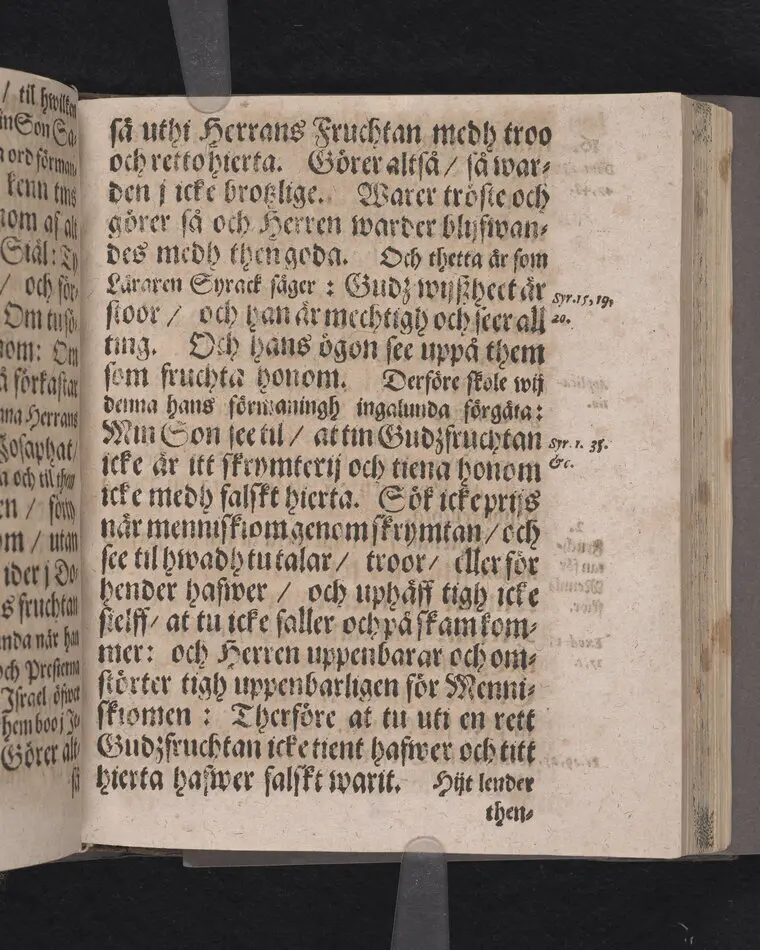 / til hwilken
så uthi Herrans Fruchtan medh troo
och retto hierta. Görer altså / så war⸗
den j icke brotzlige. Warer tröste och
görer så och Herren warder blijfwan⸗
des medh then goda. Och thetta är som
Läraren Syrack säger : Gudz wijßheet är
Syr. 15, 19,
stoor / och han är mechtigh och seer all
20.
ting. Och hans ögon see uppå them
som fruchta honom. Derföre skole wij
denna hans förmaningh ingalunda förgäta:
Min Son see til / at tin Gudzfruchtan
Syr. 1. 35.
icke är itt skrymterij och tiena honom
&c.
icke medh falskt hierta. Sök icke prijs
när menniskiom genom skrymtan / och
see til hwadh tu talar / troor / eller för
hender hafwer / och uphäff tigh icke
sielff / at tu icke faller och på skam kom⸗
mer: och Herren uppenbarar och om⸗
störter tigh uppenbarligen för Menni⸗
skiomen : Therföre at tu uti en rett
Gudzfruchtan icke tient hafwer och titt
hierta hafwer falskt warit. Hijt lender
then⸗
in Son Sa⸗
a ord förman
kenn tins
nom af alt
Stål: Ty
/ och för⸗
nom: Om
å förkastar
nna Herrans
Josaphat /
a och til then
en / föny
om / utan
ider j Do
s fruchtan
nda när han
och Presterna
Israel öfwer
hem boo j Je⸗
Görer alt⸗
så